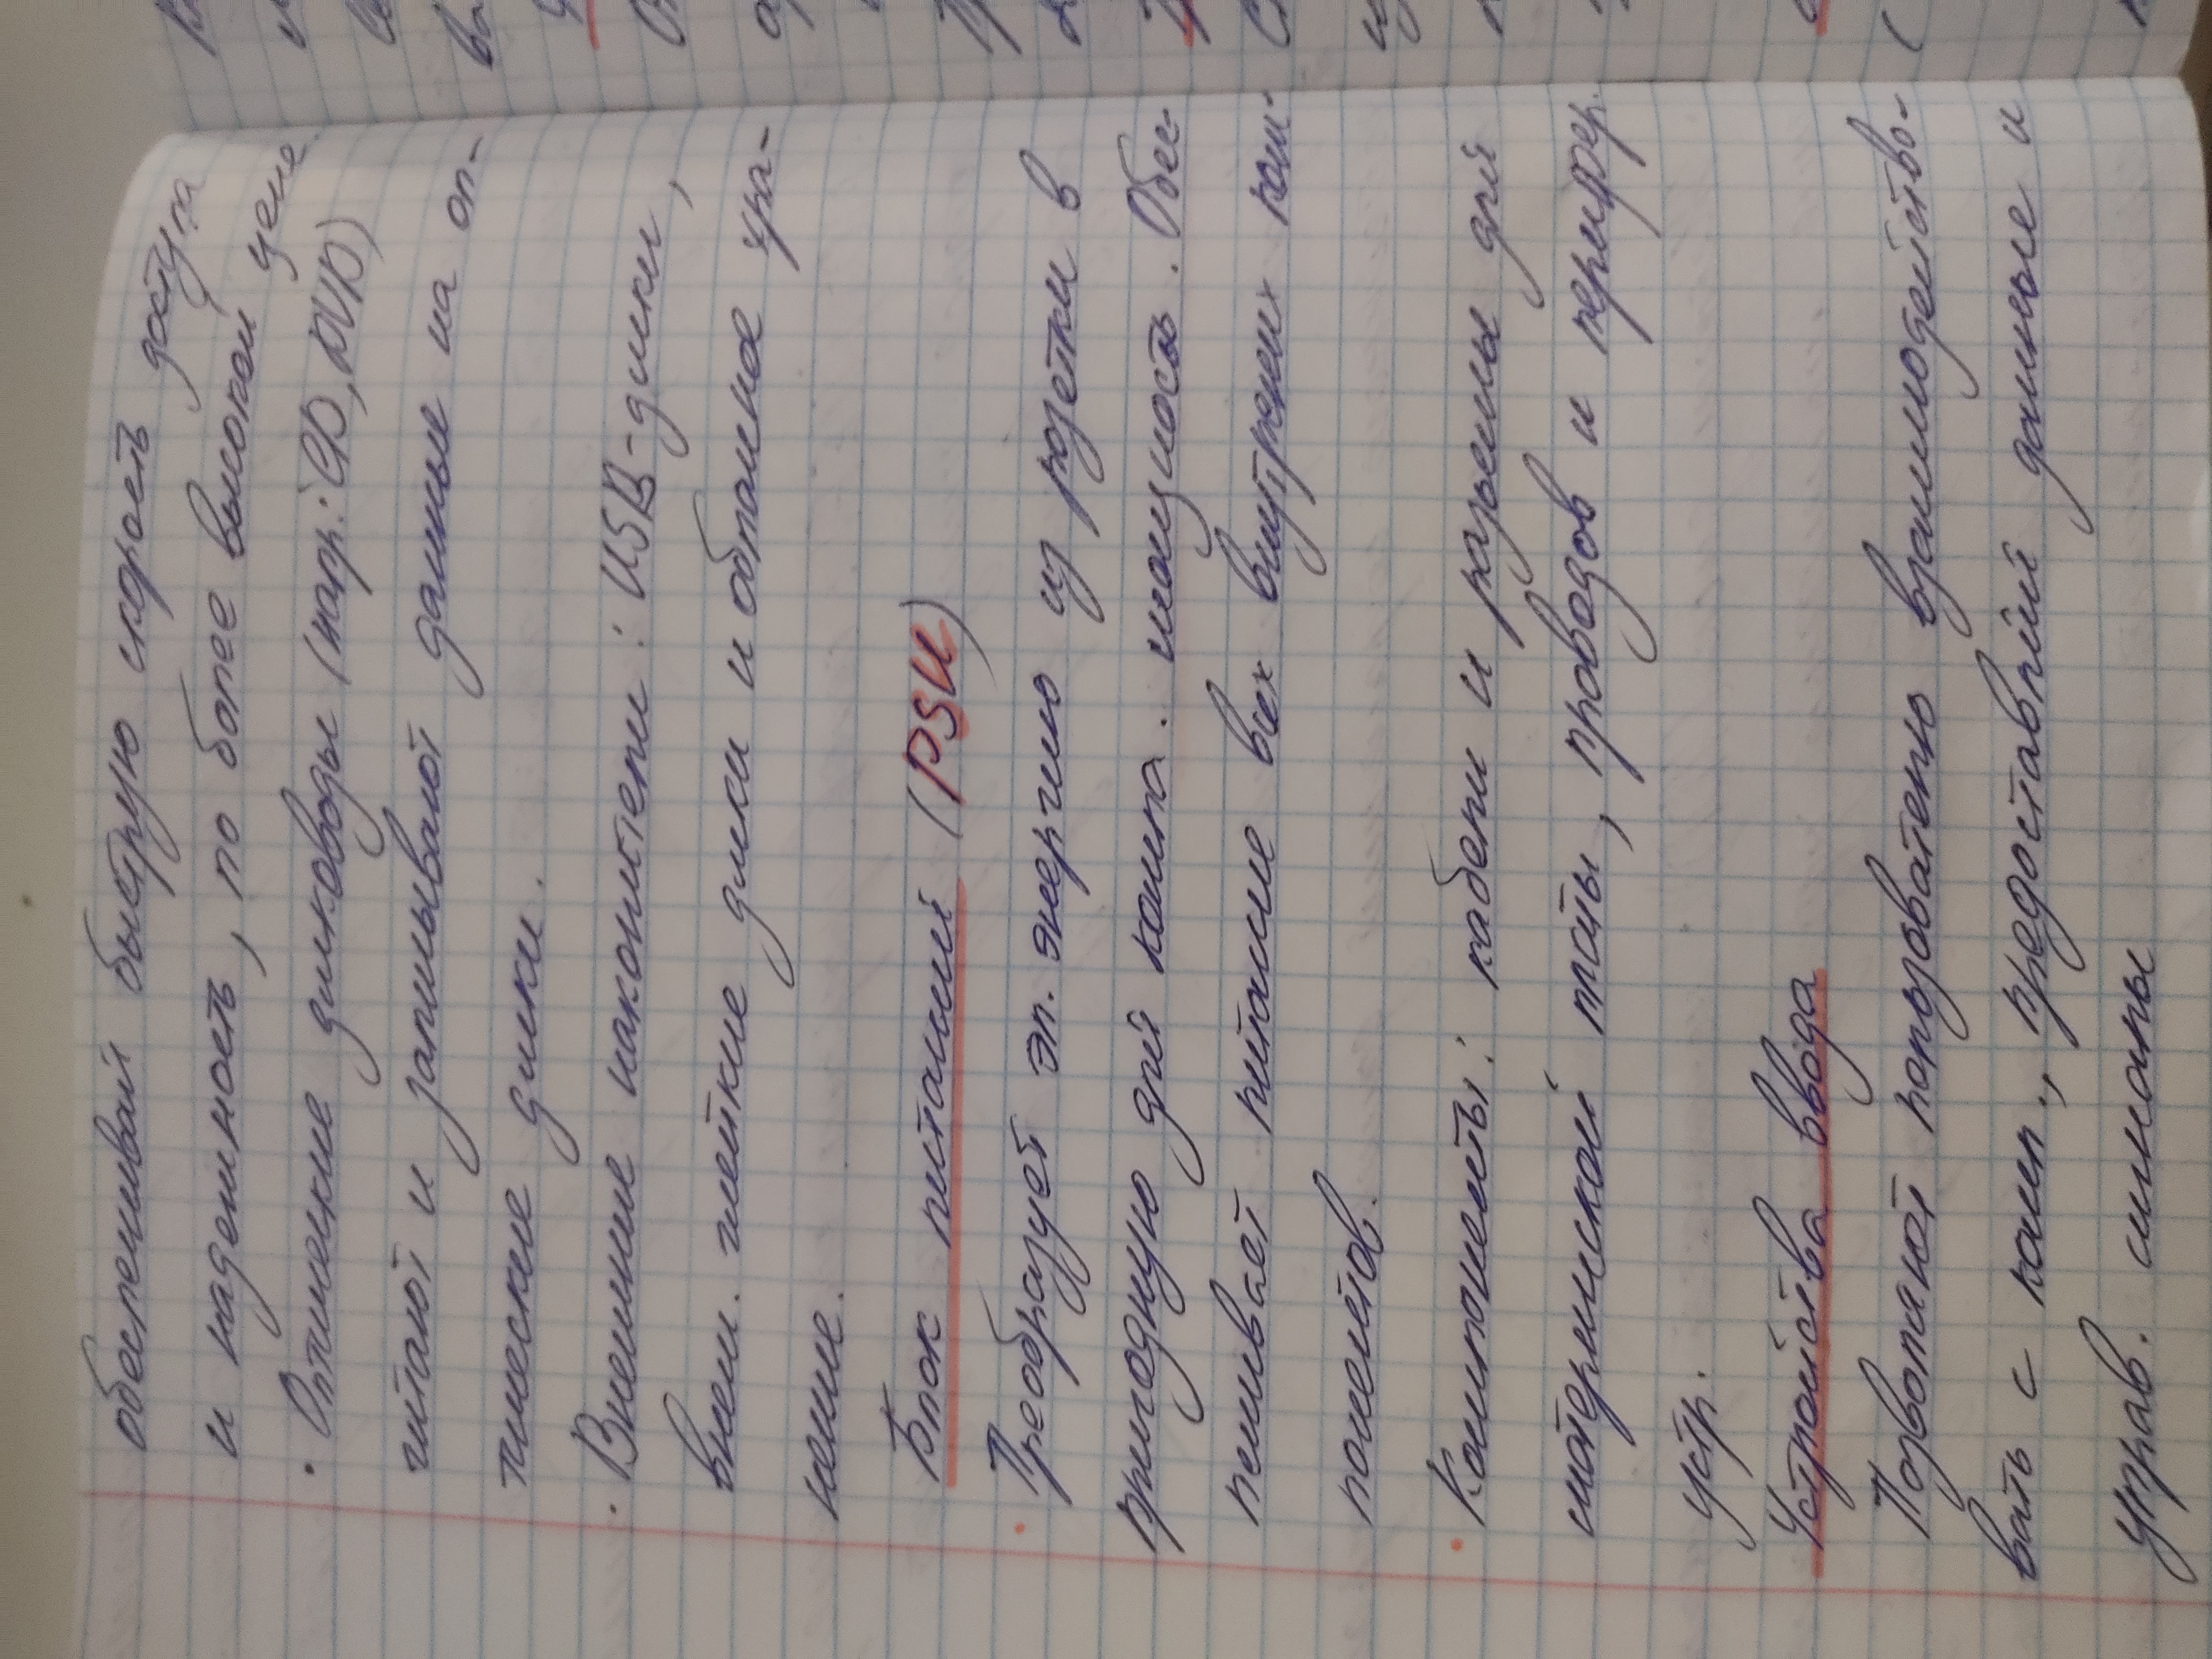 обеспечивай быструю скорость доступа
и надежность, по более высокой цене.
· Оптические дисководы (напр: CD, DVD)
читают и записывают данные на оп-
тические диски.
· Внешние накопители: USB-диски,
внеш. жесткие диски и облачное хра-
нение.
Блок питаний (PSU)
· Преобразует эл. энергию из розетки в
пригодную для компа. мощность. Обес-
печивает питание всех внутрених ком-
понентов.
· Компоненты: кабели и разъемы для
материнской платы, проводов и перифер.
устр.
Устройства ввода
Позволяют пользователю взаимодейство-
вать с комп., предоставляя данные и
управ. сигналы